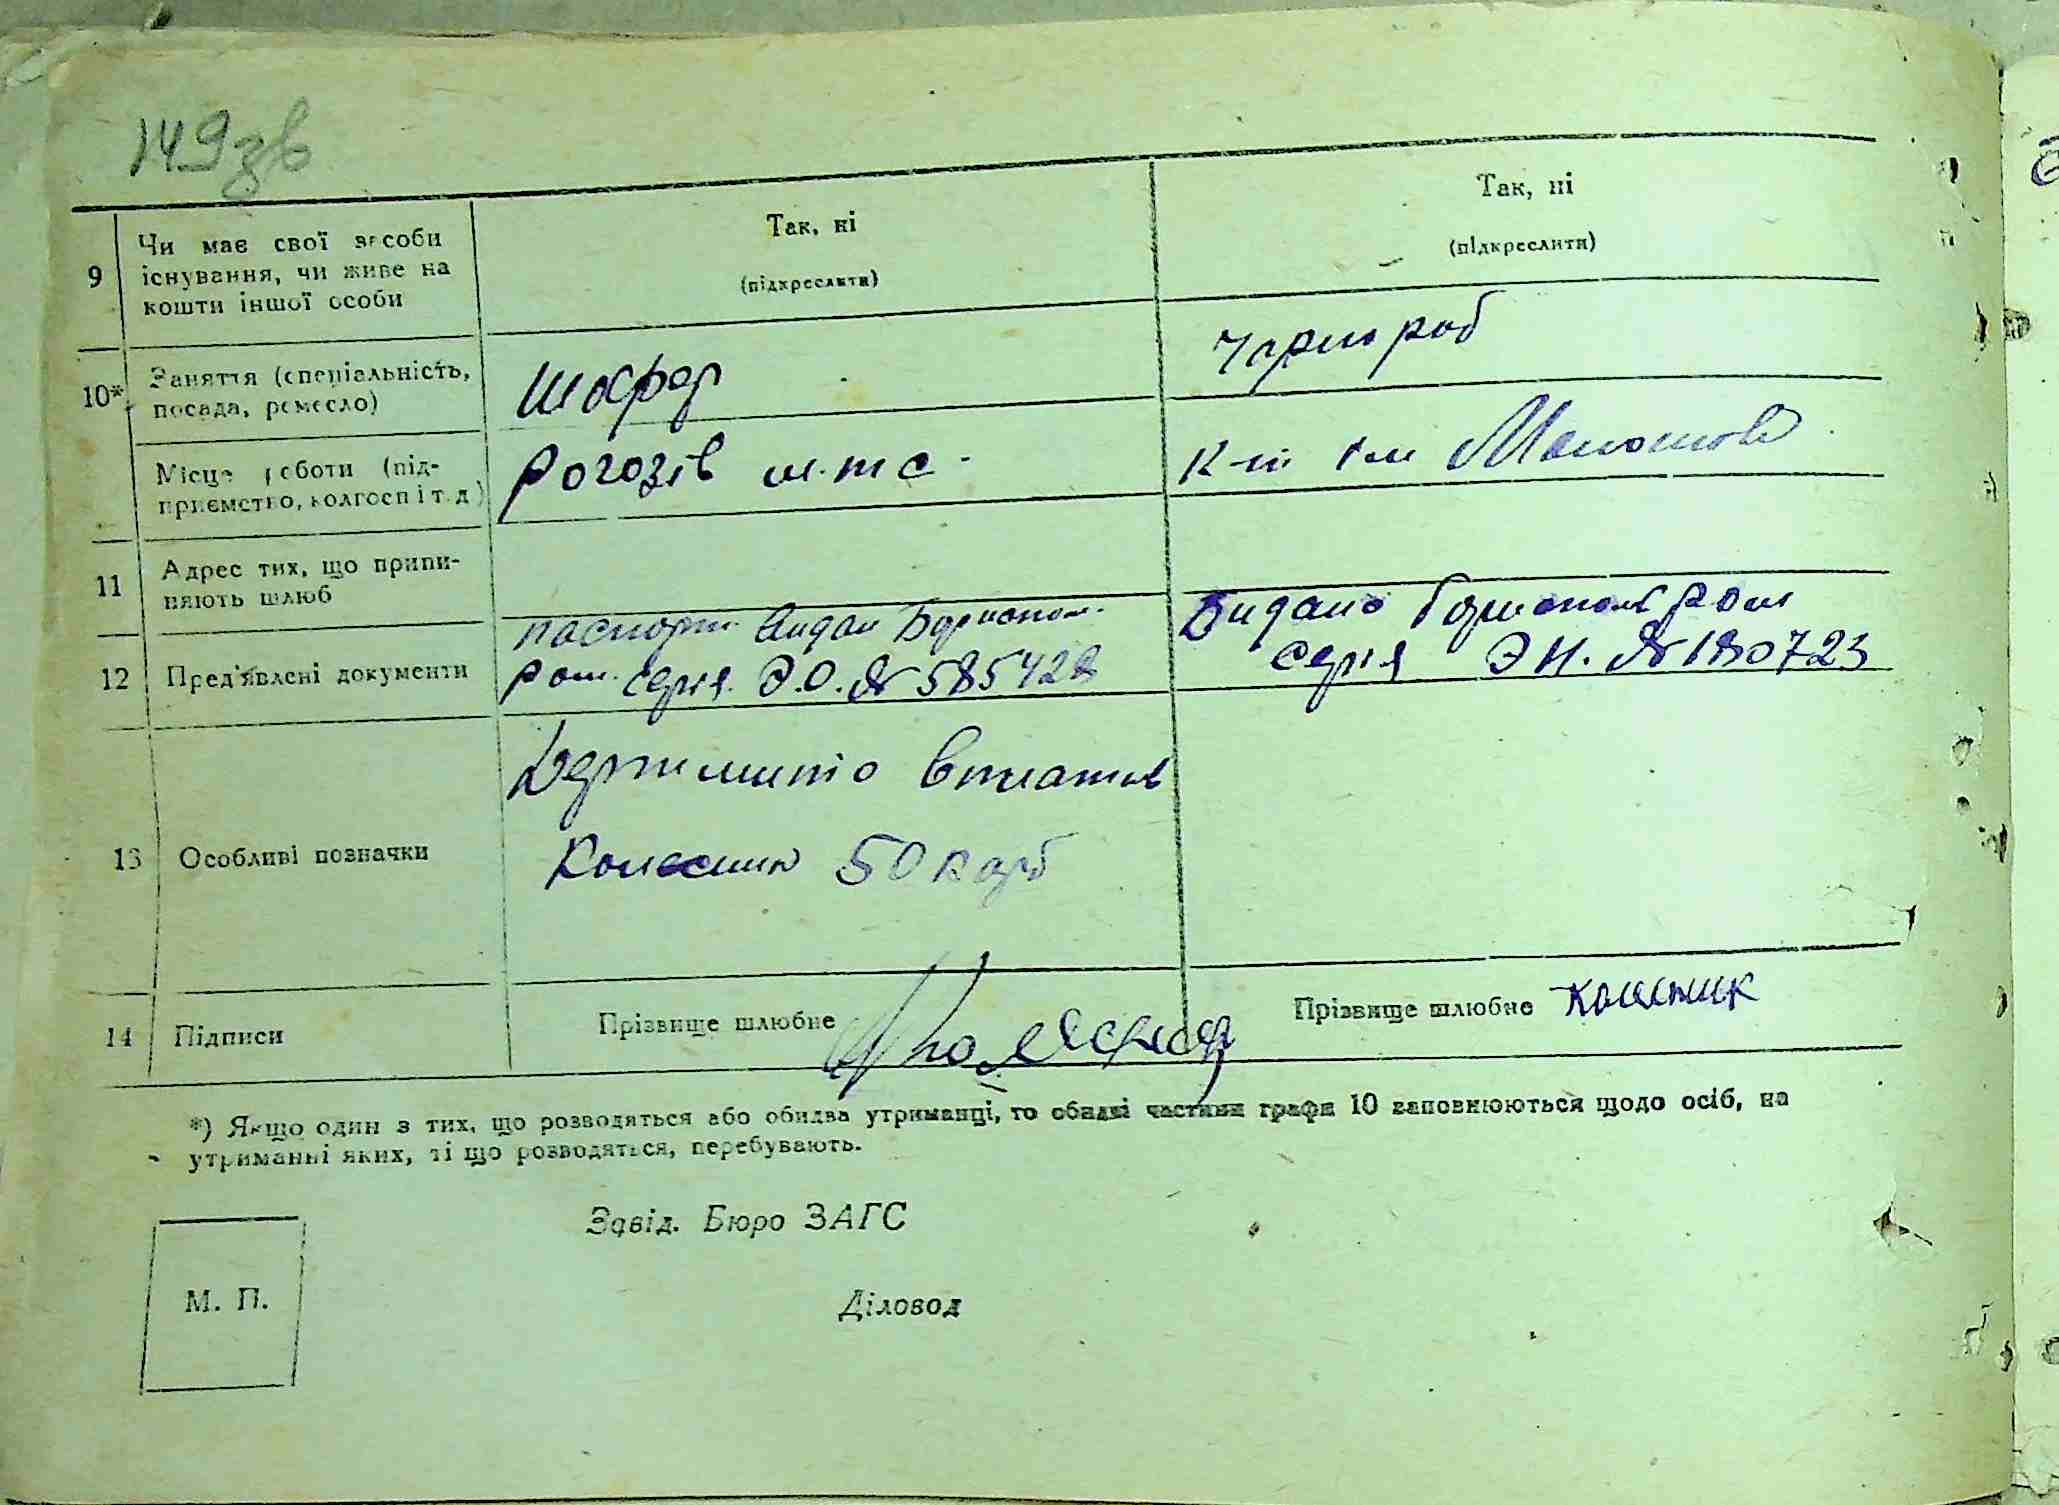 149зв
9
Чи має свої засоби
існування, чи живе на
кошти іншої особи
Так, ні
(підкреслити)
Так, ні
(підкреслити)
10*
Заняття (спеціальність,
посада, ремесло)
Шофер
Чорнороб
Місце роботи (під-
приємство, колгосп і т. д)
Рогозів м.т.с.
К-п ім Молотов
11
Адрес тих, що припи-
няють шлюб
12
Пред'явлені документи
паспорт видан Борисполь.
ром. серія. Э.О. № 585428
Видано Бориспольс ром
серія Э Н. № 180723
13
Особливі позначки
50 карб
14
Підписи
Прізвище шлюбне
Прізвище шлюбне
*) Якщо один з тих, що розводяться або обидва утриманці, то обидві частини графи 10 заповнюються щодо осіб, на
утриманні яких, ті що розводяться, перебувають.
Завід. Бюро ЗАГС
М. П.
Діловод